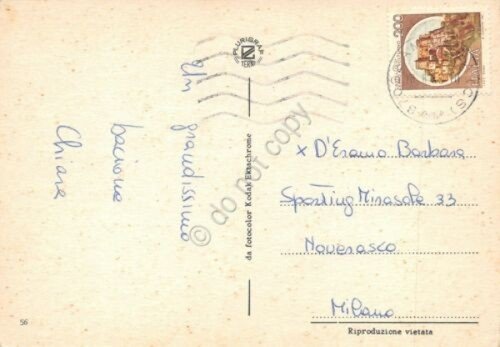 Un
grandissimo
bacione
Chiara
PLURIGRAF
TERNI
da fotocolor Kodak Ektachrome
© do not copy
200
x D'Eramo Barbara
Sporting Mirasole 33
Noverasco
Milano
56
Riproduzione vietata